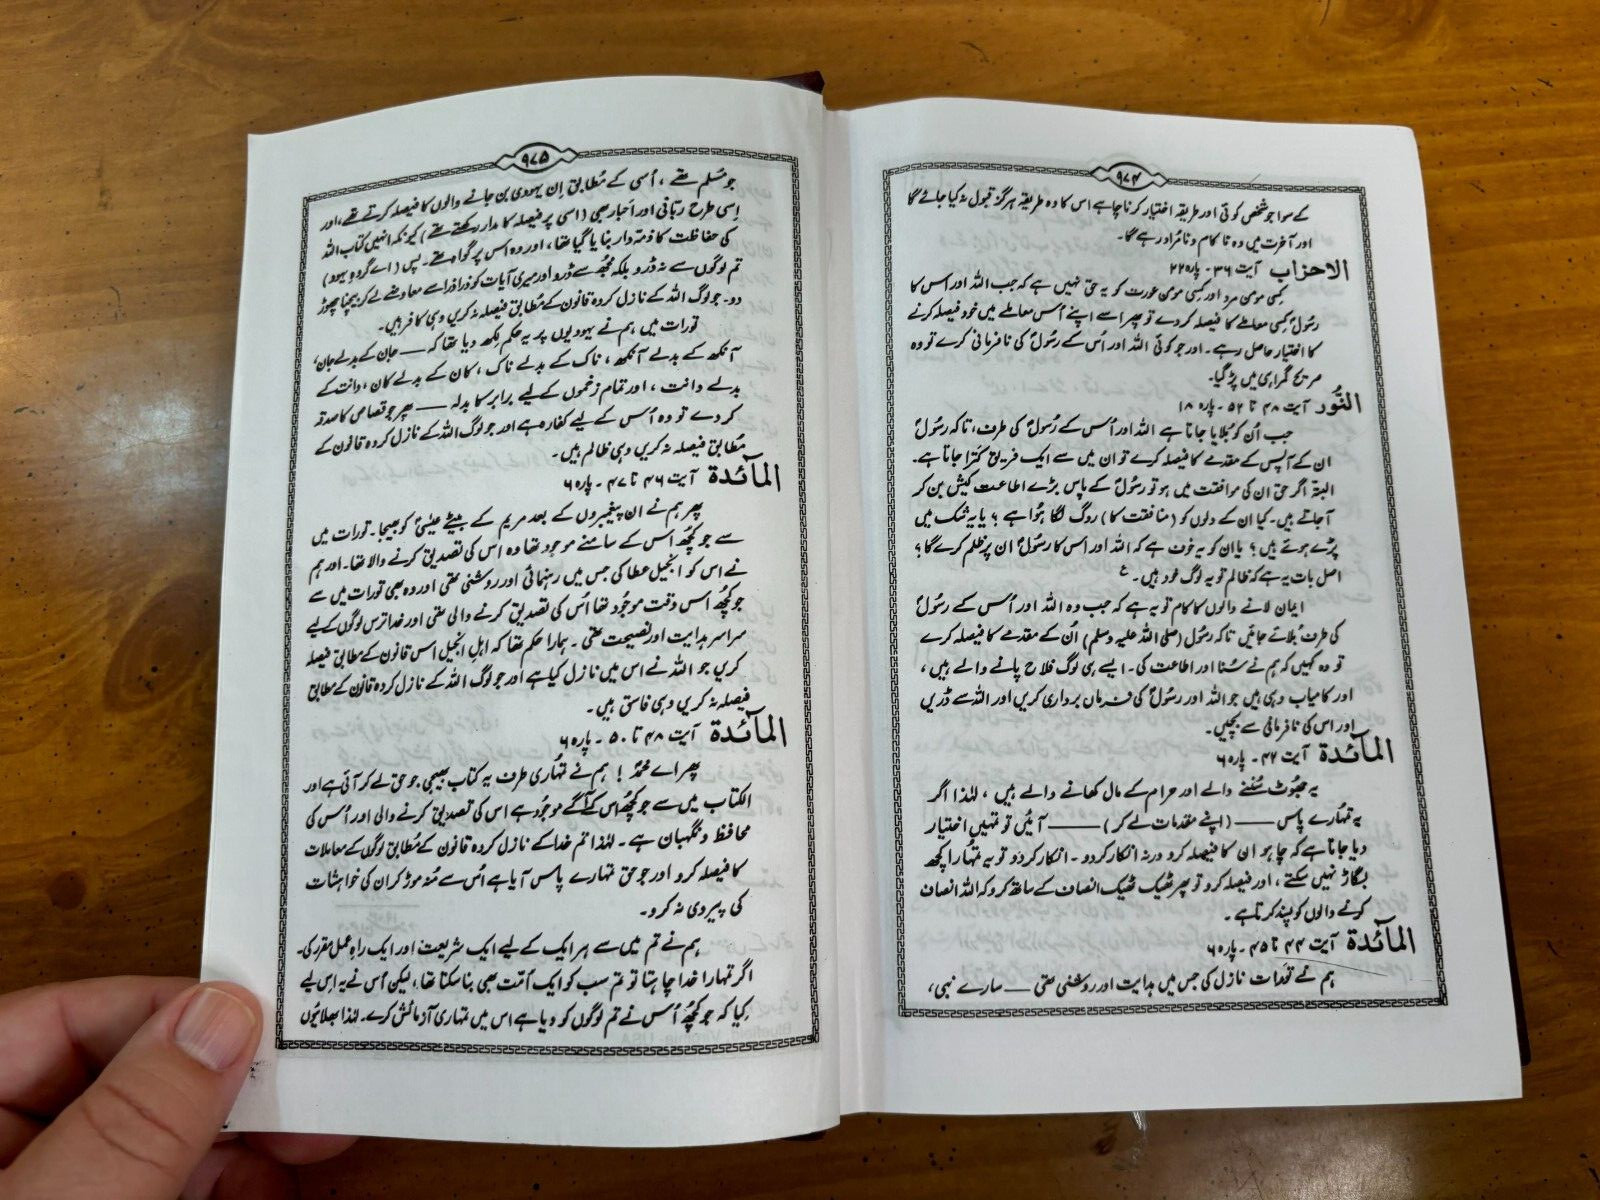 ۹۷۴
کے سوا جو شخص کوئی اور طریقہ اختیار کرنا چاہے اس کا وہ طریقہ ہرگز قبول نہ کیا جائے گا
اور آخرت میں وہ ناکام و نامراد رہے گا۔
الاحزاب آیت ۳۶۔ پارہ ۲۲
کسی مومن مرد اور کسی مومن عورت کو یہ حق نہیں ہے کہ جب اللہ اور اس کا
رسولؐ کسی معاملے کا فیصلہ کر دے تو پھر اسے اپنے اُس معاملے میں خود فیصلہ کرنے
کا اختیار حاصل رہے۔ اور جو کوئی اللہ اور اُس کے رسولؐ کی نافرمانی کرے تو وہ
صریح گمراہی میں پڑ گیا۔
النُّور آیت ۴۸ تا ۵۲۔ پارہ ۱۸
جب اُن کو بُلایا جاتا ہے اللہ اور اُس کے رُسولؐ کی طرف، تاکہ رسُولؐ
ان کے آپس کے مقدمے کا فیصلہ کرے تو ان میں سے ایک فریق کترا جاتا ہے۔
البتہ اگر حق ان کی موافقت میں ہو تو رسُولؐ کے پاس بڑے اطاعت کیش بن کر
آجاتے ہیں۔ کیا ان کے دلوں کو (منافقت کا) روگ لگا ہُوا ہے ؟ یا یہ شک میں
پڑے ہوئے ہیں ؟ یا ان کو یہ خوف ہے کہ اللہ اور اس کا رسُولؐ ان پر ظلم کرے گا ؟
اصل بات یہ ہے کہ ظالم تو یہ لوگ خود ہیں۔ ع
ایمان لانے والوں کا کام تو یہ ہے کہ جب وہ اللہ اور اُس کے رسُولؐ
کی طرف بُلائے جائیں تاکہ رسُول (صلی اللہ علیہ وسلم) اُن کے مقدمے کا فیصلہ کرے
تو وہ کہیں کہ ہم نے سُنا اور اطاعت کی۔ ایسے ہی لوگ فلاح پانے والے ہیں ،
اور کامیاب وہی ہیں جو اللہ اور رسُولؐ کی فرمان برداری کریں اور اللہ سے ڈریں
اور اس کی نافرمانی سے بچیں۔
المآئدة آیت ۴۲۔ پارہ ۶
یہ جھُوٹ سُننے والے اور حرام کے مال کھانے والے ہیں ، لہٰذا اگر
یہ تمہارے پاس —— (اپنے مقدمات لے کر) —— آئیں تو تمہیں اختیار
دیا جاتا ہے کہ چاہو ان کا فیصلہ کرو ورنہ انکار کر دو۔ انکار کر دو تو یہ تمہارا کچھ
بگاڑ نہیں سکتے ، اور فیصلہ کرو تو پھر ٹھیک ٹھیک انصاف کے ساتھ کرو کہ اللہ انصاف
کرنے والوں کو پسند کرتا ہے۔
المآئدة آیت ۴۴ تا ۴۵۔ پارہ ۶
ہم نے تورات نازل کی جس میں ہدایت اور روشنی تھی —— سارے نبی ،
۹۷۵
جو مُسلم تھے ، اُسی کے مُطابق اِن یہودی بن جانے والوں کا فیصلہ کرتے تھے، اور
اِسی طرح ربّانی اور احبار بھی (اسی پر فیصلہ کا مدار رکھتے تھے) کیونکہ انہیں کتاب اللہ
کی حفاظت کا ذمہ دار بنایا گیا تھا، اور وہ اس پر گواہ تھے۔ پس (اے گروہِ یہود)
تم لوگوں سے نہ ڈرو بلکہ مجھ سے ڈرو اور میری آیات کو ذرا ذرا سے معاوضے لے کر بیچنا چھوڑ
دو۔ جو لوگ اللہ کے نازل کردہ قانون کے مُطابق فیصلہ نہ کریں وہی کافر ہیں۔
تورات میں ہم نے یہودیوں پر یہ حکم لکھ دیا تھا کہ —— جان کے بدلے جان،
آنکھ کے بدلے آنکھ ، ناک کے بدلے ناک ، کان کے بدلے کان ، دانت کے
بدلے دانت ، اور تمام زخموں کے لیے برابر کا بدلہ —— پھر جو قصاص کا صدقہ
کر دے تو وہ اُس کے لیے کفارہ ہے اور جو لوگ اللہ کے نازل کردہ قانون کے
مُطابق فیصلہ نہ کریں وہی ظالم ہیں۔
المآئدة آیت ۴۶ تا ۴۷۔ پارہ ۶
پھر ہم نے ان پیغمبروں کے بعد مریم کے بیٹے عیسٰیؑ کو بھیجا۔ تورات میں
سے جو کچھ اس کے سامنے موجود تھا وہ اس کی تصدیق کرنے والا تھا۔ اور ہم
نے اس کو انجیل عطا کی جس میں رہنمائی اور روشنی تھی اور وہ بھی تورات میں سے
جو کچھ اس وقت موجُود تھا اُس کی تصدیق کرنے والی تھی اور خدا ترس لوگوں کے لیے
سراسر ہدایت اور نصیحت تھی۔ ہمارا حکم تھا کہ اہلِ انجیل اس قانون کے مطابق فیصلہ
کریں جو اللہ نے اس میں نازل کیا ہے اور جو لوگ اللہ کے نازل کردہ قانون کے مطابق
فیصلہ نہ کریں وہی فاسق ہیں۔
المآئدة آیت ۴۸ تا ۵۰۔ پارہ ۶
پھر اے محمدؐ ! ہم نے تمہاری طرف یہ کتاب بھیجی جو حق لے کر آئی ہے اور
الکتاب میں سے جو کچھ اس کے آگے موجُود ہے اس کی تصدیق کرنے والی اور اُس کی
محافظ و نگہبان ہے۔ لہٰذا تم خدا کے نازل کردہ قانون کے مُطابق لوگوں کے معاملات
کا فیصلہ کرو اور جو حق تمہارے پاس آیا ہے اس سے مُنہ موڑ کر ان کی خواہشات
کی پیروی نہ کرو۔
ہم نے تم میں سے ہر ایک کے لیے ایک شریعت اور ایک راہِ عمل مقرر کی۔
اگر تمہارا خدا چاہتا تو تم سب کو ایک اُمّت بھی بنا سکتا تھا، لیکن اُس نے یہ اس لیے
کیا کہ جو کچھ اُس نے تم لوگوں کو دیا ہے اس میں تمہاری آزمائش کرے۔ لہٰذا بھلائیوں